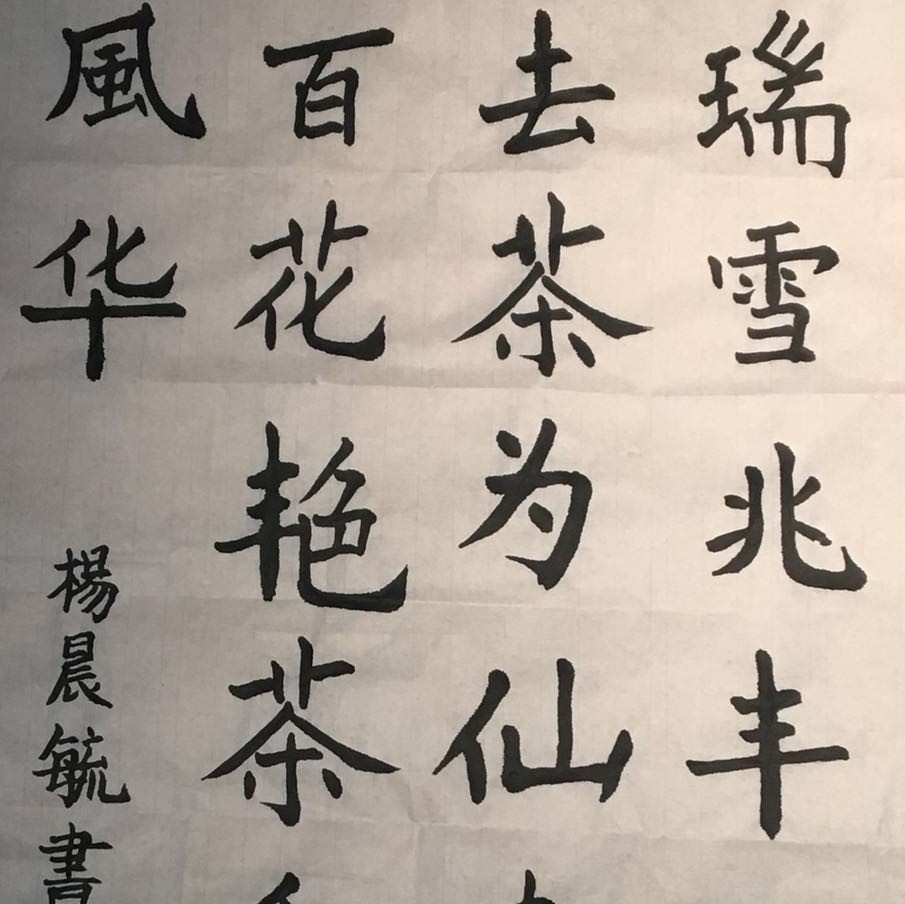 瑞雪兆丰
去茶为仙
百花艳茶
風华
楊晨毓書